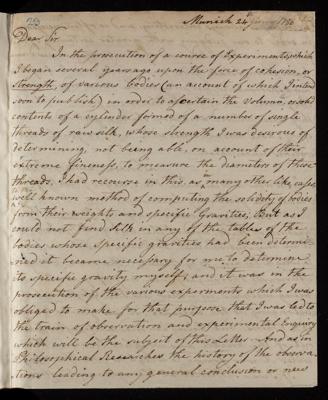 Munich 24th
Dear Sir
In the prosecution of a course of Experiments which
I began several years ago upon the force of cohesion, or
Strength, of various bodies (an account of which I intend
soon to publish) in order to ascertain the Volume, or solid
contents of a cylinder formed of a number of single
threads of raw silk, whose strength I was desirous of
determining, not being able, on account of their
extreme fineness, to measure the diameters of these
threads, I had recourse in this, as in many other like, cases
well known method of computing the solidity of bodies
from their weights and specific Gravities; But as I
could not find silk in any of the tables of the
bodies whose specific gravities had been determi-
ned it became necessary for me to determine
its specific gravity myself; and it was in the
prosecution of the various experiments which I was
obliged to make for that purpose that I was led to
the train of observation and experimental Enquiry
which will be the subject of this Letter. And as in
Philosophical Researches the history of the observa-
tions leading to any general conclusion or new